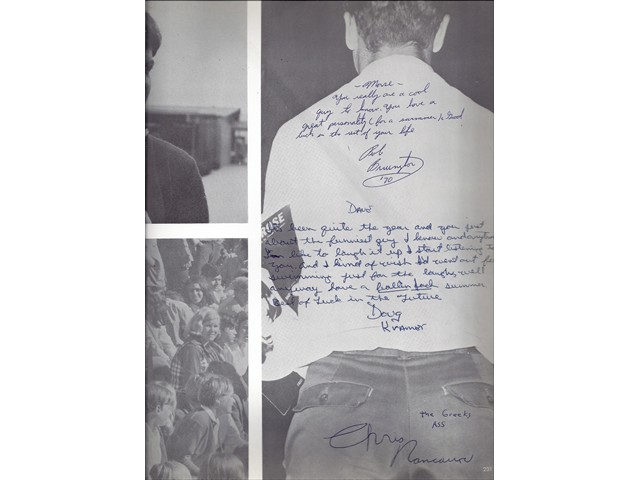 You really are a cool
guy to know. You have a
great personality (for a swimmer). Good
luck in the rest of your life
Bob
'70
Dave
been quite the year and you just
about the funniest guy I know
like to laugh it up I start listening to
you and I kind of wish I'd went out for
swimming just for the laughs, well
anyway have a summer
best of luck in the future
Doug
Kramer
RUSE
the Greeks
ASS
Chris